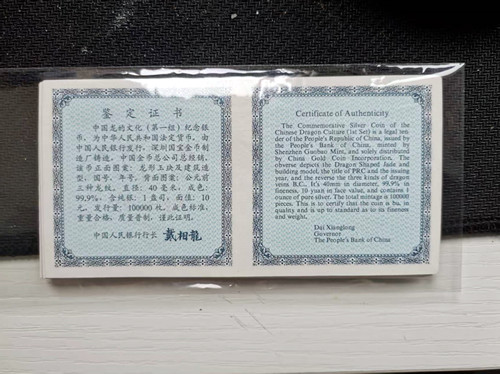 鉴定证书
中国龙的文化(第一组)纪念银
币,为中华人民共和国法定货币。由
中国人民银行发行,深圳国宝金币制
造厂铸造,中国金币总公司总经销。
该币正面图案:龙形玉玦及建筑造
型,国号、年号。背面图案:公元前
三种龙纹。直径:40毫米,成色:
99.9%,含纯银:1盎司,面值:10
元,发行量:100000枚。成色标准,
重量合格,质量普制,谨此证明。
中国人民银行行长 戴相龍
Certificate of Authenticity
The Commemorative Silver Coin of the
Chinese Dragon Culture (1st Set) is a legal ten
der of the People's Republic of China, issued
by the People's Bank of China, minted by
Shenzhen Guobao Mint, and solely distributed
by China Gold Coin Incorporation. The
obverse depicts the Dragon Shaped Jade and
building model, the title of PRC and the issuing
year, and the reverse the three kinds of dragon
veins B.C.. It's 40mm in diameter, 99.9% in
fineness, 10 yuan in face value, and contains 1
ounce of pure silver. The total mintage is 100000
pieces. This is to certify that the coin is bu. in
quality and is up to standard as to its fineness
and weight.
Dai Xianglong
Governor
The People's Bank of China